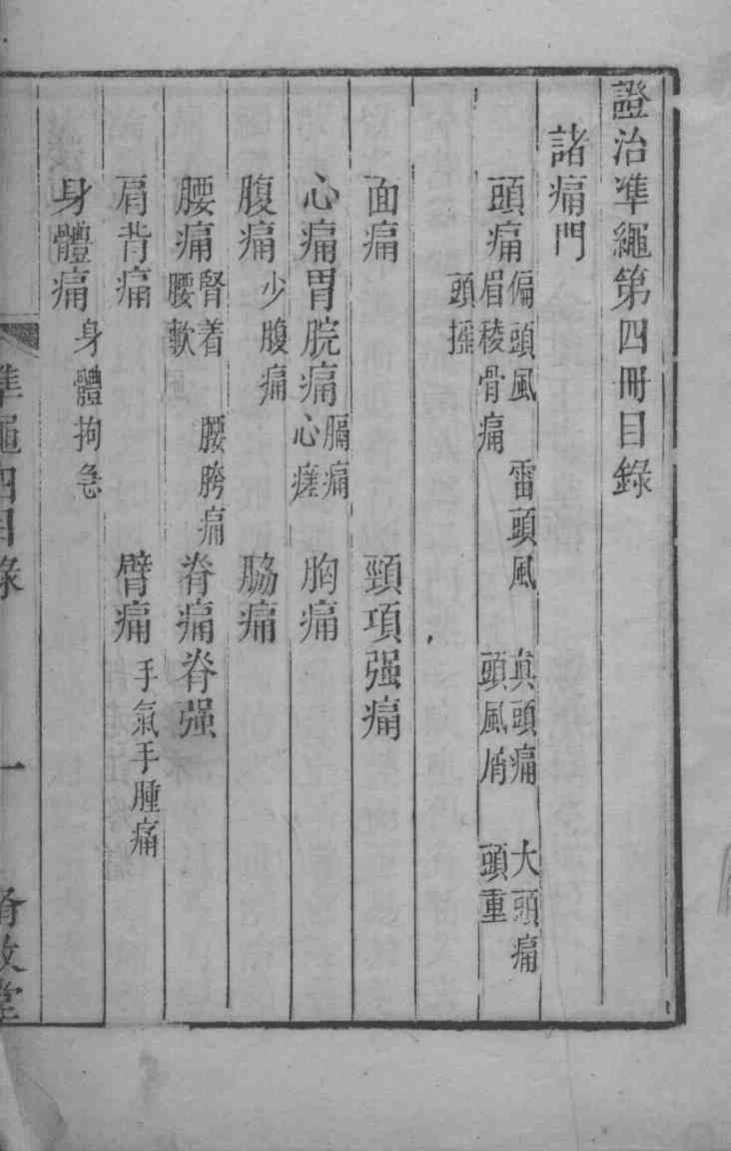 證治準繩第四冊目錄
諸痛門
頭痛 偏頭風 雷頭風 真頭痛 大頭痛
眉稜骨痛 頭風屑 頭重
頭搖
面痛 頸項强痛
心痛胃脘痛 膈痛 心瘥 胸痛
腹痛 少腹痛 脇痛
腰痛 腎着 腰胯痛 腰軟 脊痛脊强
肩背痛 臂痛 手氣手腫痛
身體痛 身體拘急
準繩四目錄 一